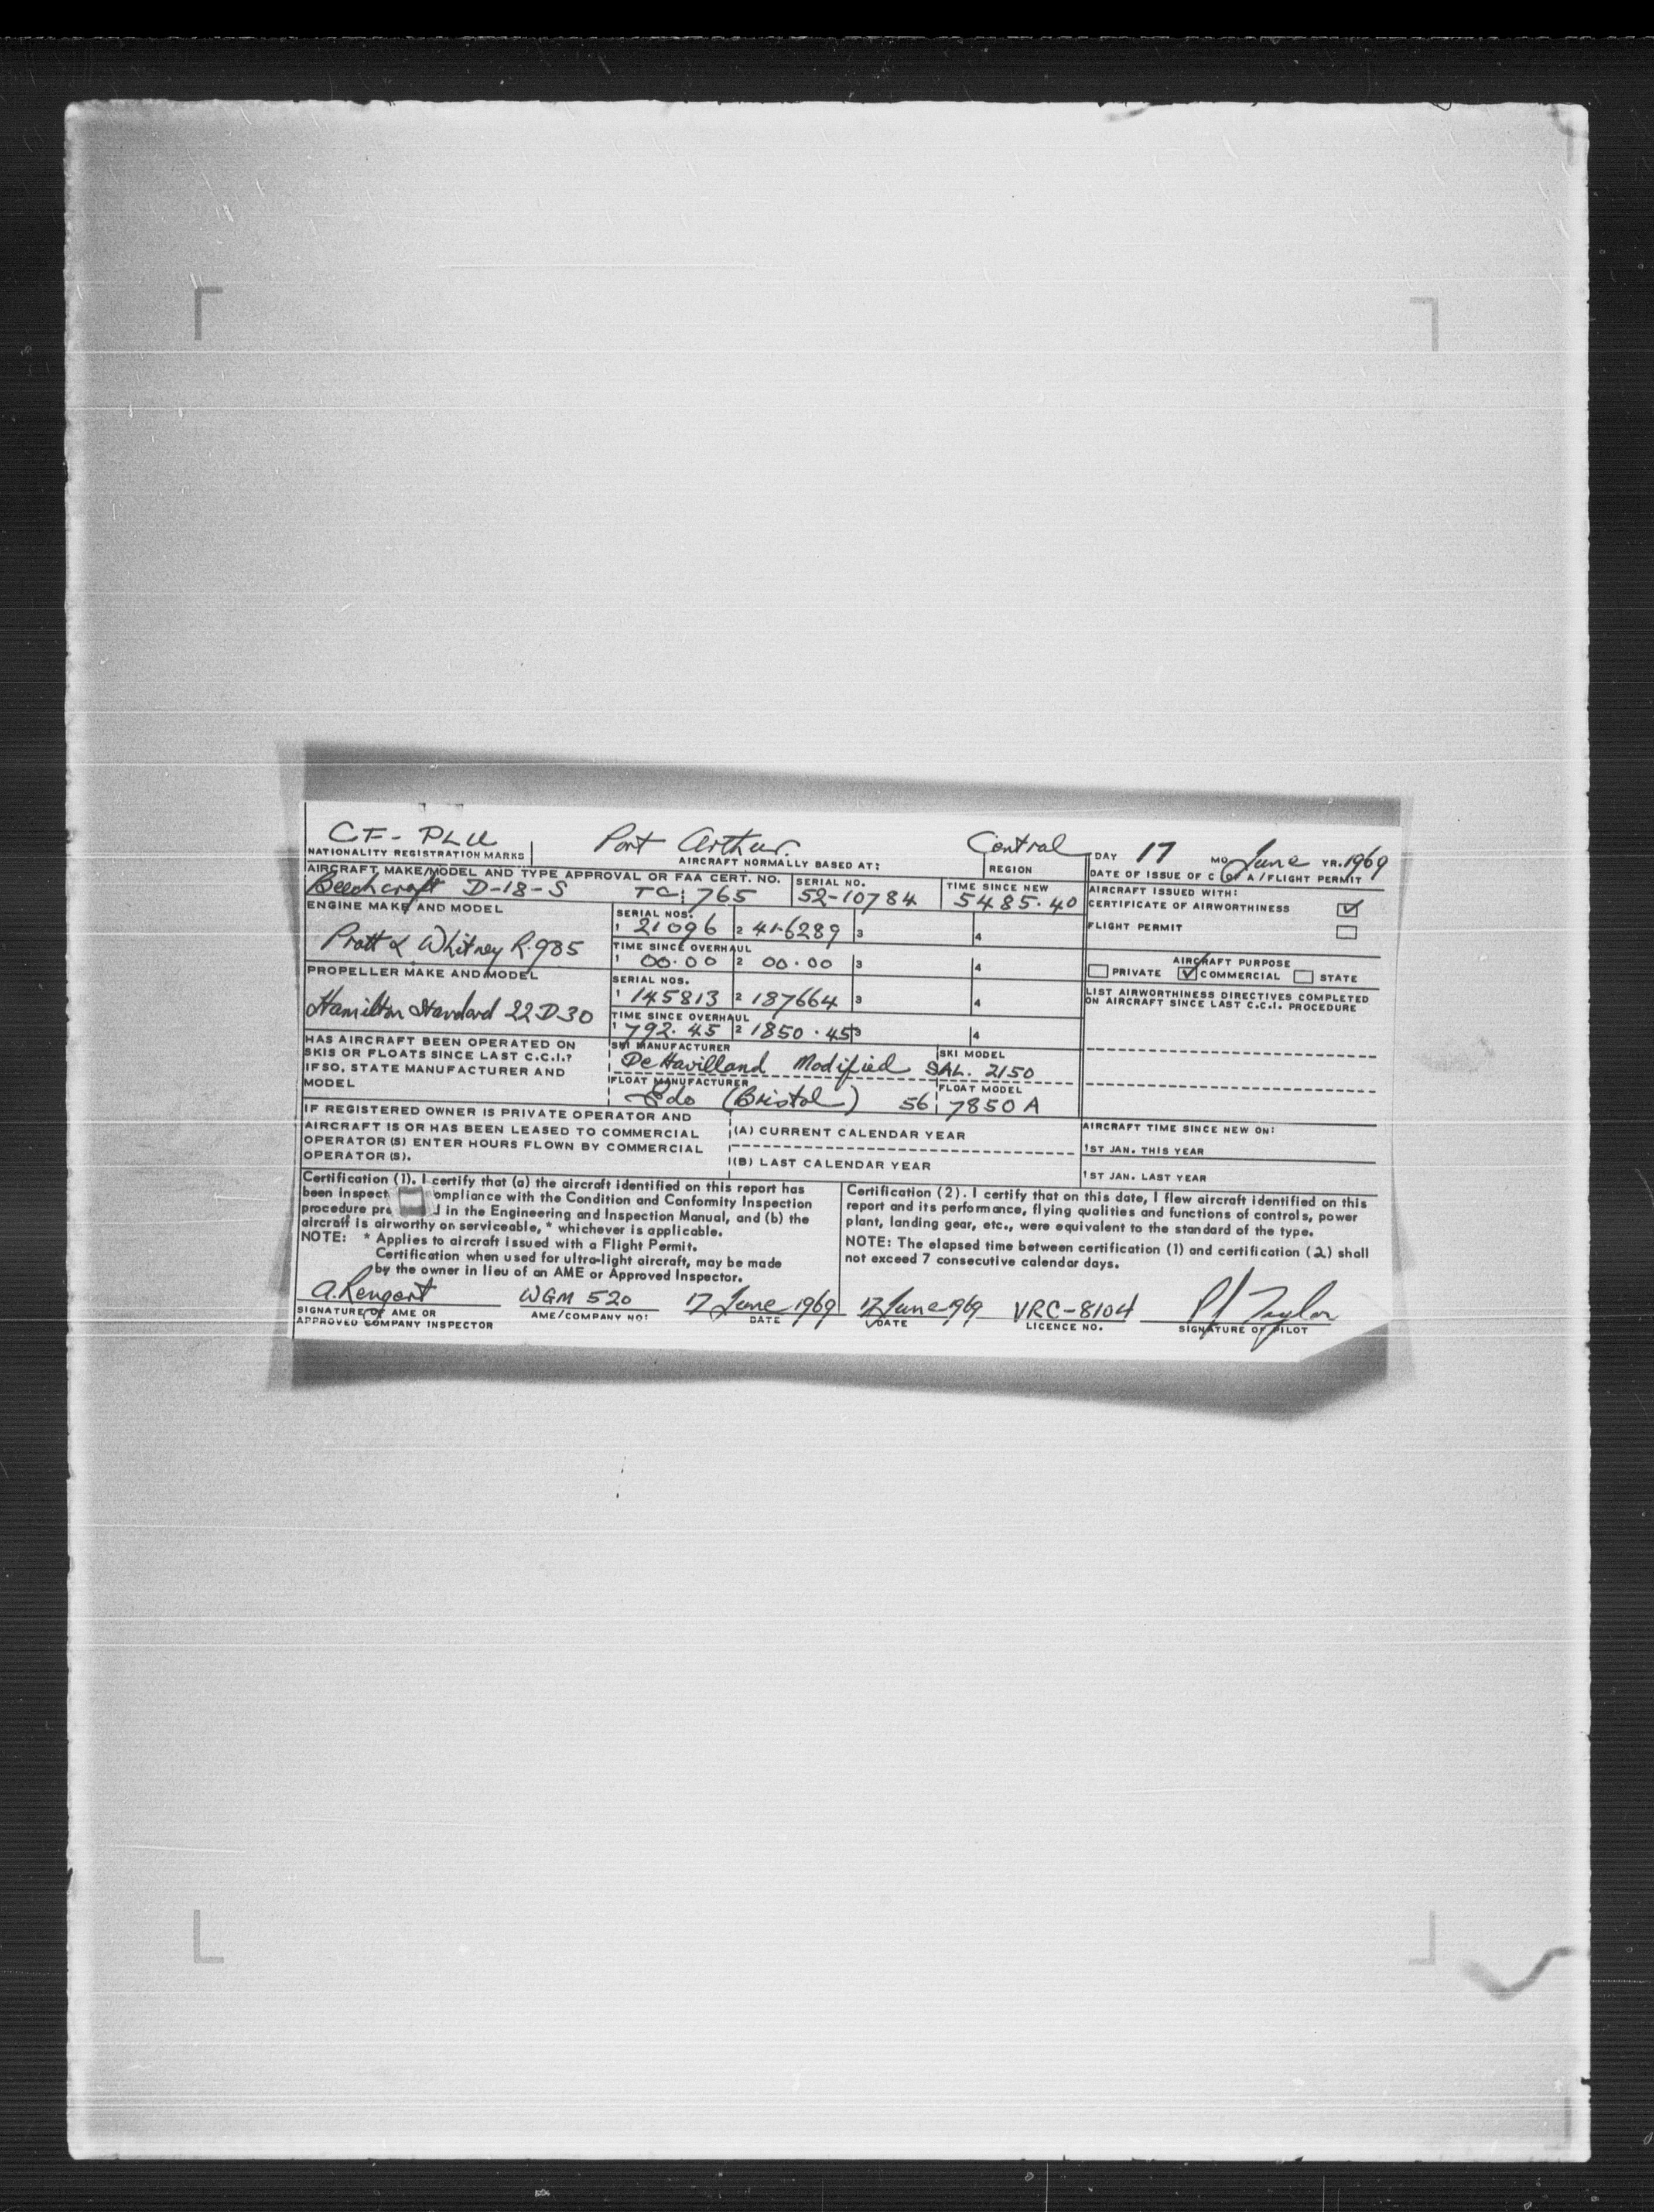 CF-PLU Port Arthur. Central DAY 17 MO June YR. 1969
NATIONALITY REGISTRATION MARKS AIRCRAFT NORMALLY BASED AT: REGION DATE OF ISSUE OF C OF A / FLIGHT PERMIT
AIRCRAFT MAKE/MODEL AND TYPE APPROVAL OR FAA CERT. NO. SERIAL NO. TIME SINCE NEW AIRCRAFT ISSUED WITH:
Beechcraft D-18-S TC: 765 52-10784 5485.40 CERTIFICATE OF AIRWORTHINESS ✓
ENGINE MAKE AND MODEL SERIAL NOS. FLIGHT PERMIT
1 21096 2 41-6289 3 4
Pratt & Whitney R.985 TIME SINCE OVERHAUL
1 00.00 2 00.00 3 4 AIRCRAFT PURPOSE
PROPELLER MAKE AND MODEL SERIAL NOS. PRIVATE ✓ COMMERCIAL STATE
1 145813 2 187664 3 4 LIST AIRWORTHINESS DIRECTIVES COMPLETED
ON AIRCRAFT SINCE LAST C.C.I. PROCEDURE
Hamilton Standard 22D30 TIME SINCE OVERHAUL
1 792.45 2 1850.45 3 4
HAS AIRCRAFT BEEN OPERATED ON SKI MANUFACTURER SKI MODEL
SKIS OR FLOATS SINCE LAST C.C.I.? De Havilland Modified SAL. 2150
IF SO, STATE MANUFACTURER AND FLOAT MANUFACTURER FLOAT MODEL
MODEL Edo (Bristol) 56 7850 A
IF REGISTERED OWNER IS PRIVATE OPERATOR AND
AIRCRAFT IS OR HAS BEEN LEASED TO COMMERCIAL (A) CURRENT CALENDAR YEAR AIRCRAFT TIME SINCE NEW ON:
OPERATOR (S) ENTER HOURS FLOWN BY COMMERCIAL 1ST JAN. THIS YEAR
OPERATOR (S). (B) LAST CALENDAR YEAR 1ST JAN. LAST YEAR
Certification (1). I certify that (a) the aircraft identified on this report has
been inspect ompliance with the Condition and Conformity Inspection
procedure pre d in the Engineering and Inspection Manual, and (b) the
aircraft is airworthy or serviceable, * whichever is applicable.
NOTE: * Applies to aircraft issued with a Flight Permit.
Certification when used for ultra-light aircraft, may be made
by the owner in lieu of an AME or Approved Inspector.
Certification (2). I certify that on this date, I flew aircraft identified on this
report and its performance, flying qualities and functions of controls, power
plant, landing gear, etc., were equivalent to the standard of the type.
NOTE: The elapsed time between certification (1) and certification (2) shall
not exceed 7 consecutive calendar days.
A. Rengert WGM 520 17 June 1969 17 June 1969 VRC-8104 P J Taylor
SIGNATURE OF AME OR AME/COMPANY NO: DATE DATE LICENCE NO. SIGNATURE OF PILOT
APPROVED COMPANY INSPECTOR